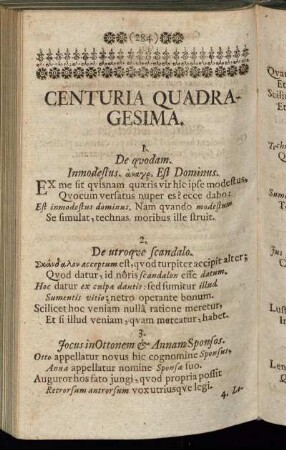 (284)
CENTURIA QUADRA-
GESIMA.
1.
De qvodam.
Inmodestus. ἀναγρ. Est Dominus.
EX me sit qvisnam quæris vir hic ipse modestus,
Qvocum versatus nuper es? ecce dabo:
Est inmodestus dominus. Nam qvando modestum
Se simulat, technas moribus ille struit.
2.
De utroqve scandalo.
Σκάνδαλον acceptum est, qvod turpiter accipit alter;
Quod datur, id nôris scandalon esse datum.
Hoc datur ex culpa dantis: sed sumitur illud
Sumentis vitio; netro operante bonum.
Scilicet hoc veniam nullâ ratione meretur,
Et si illud veniam, qvam mereatur, habet.
3.
Jocus in Ottonem & Annam Sponsos.
Otto appellatur novus hic cognomine Sponsus,
Anna appellatur nomine Sponsa suo.
Auguror hos fato jungi, qvod propria possit
Retrorsum antrorsum vox utriusqve legi.
4. Le-